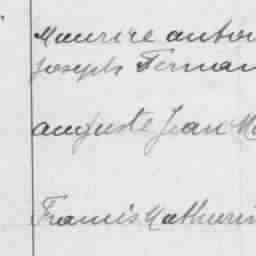 Maurice antoi
Joseph Fernan
auguste Jean Ma
Francis Mathurin